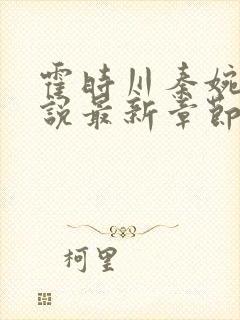 霍時川秦婉
說最新章節
柯里